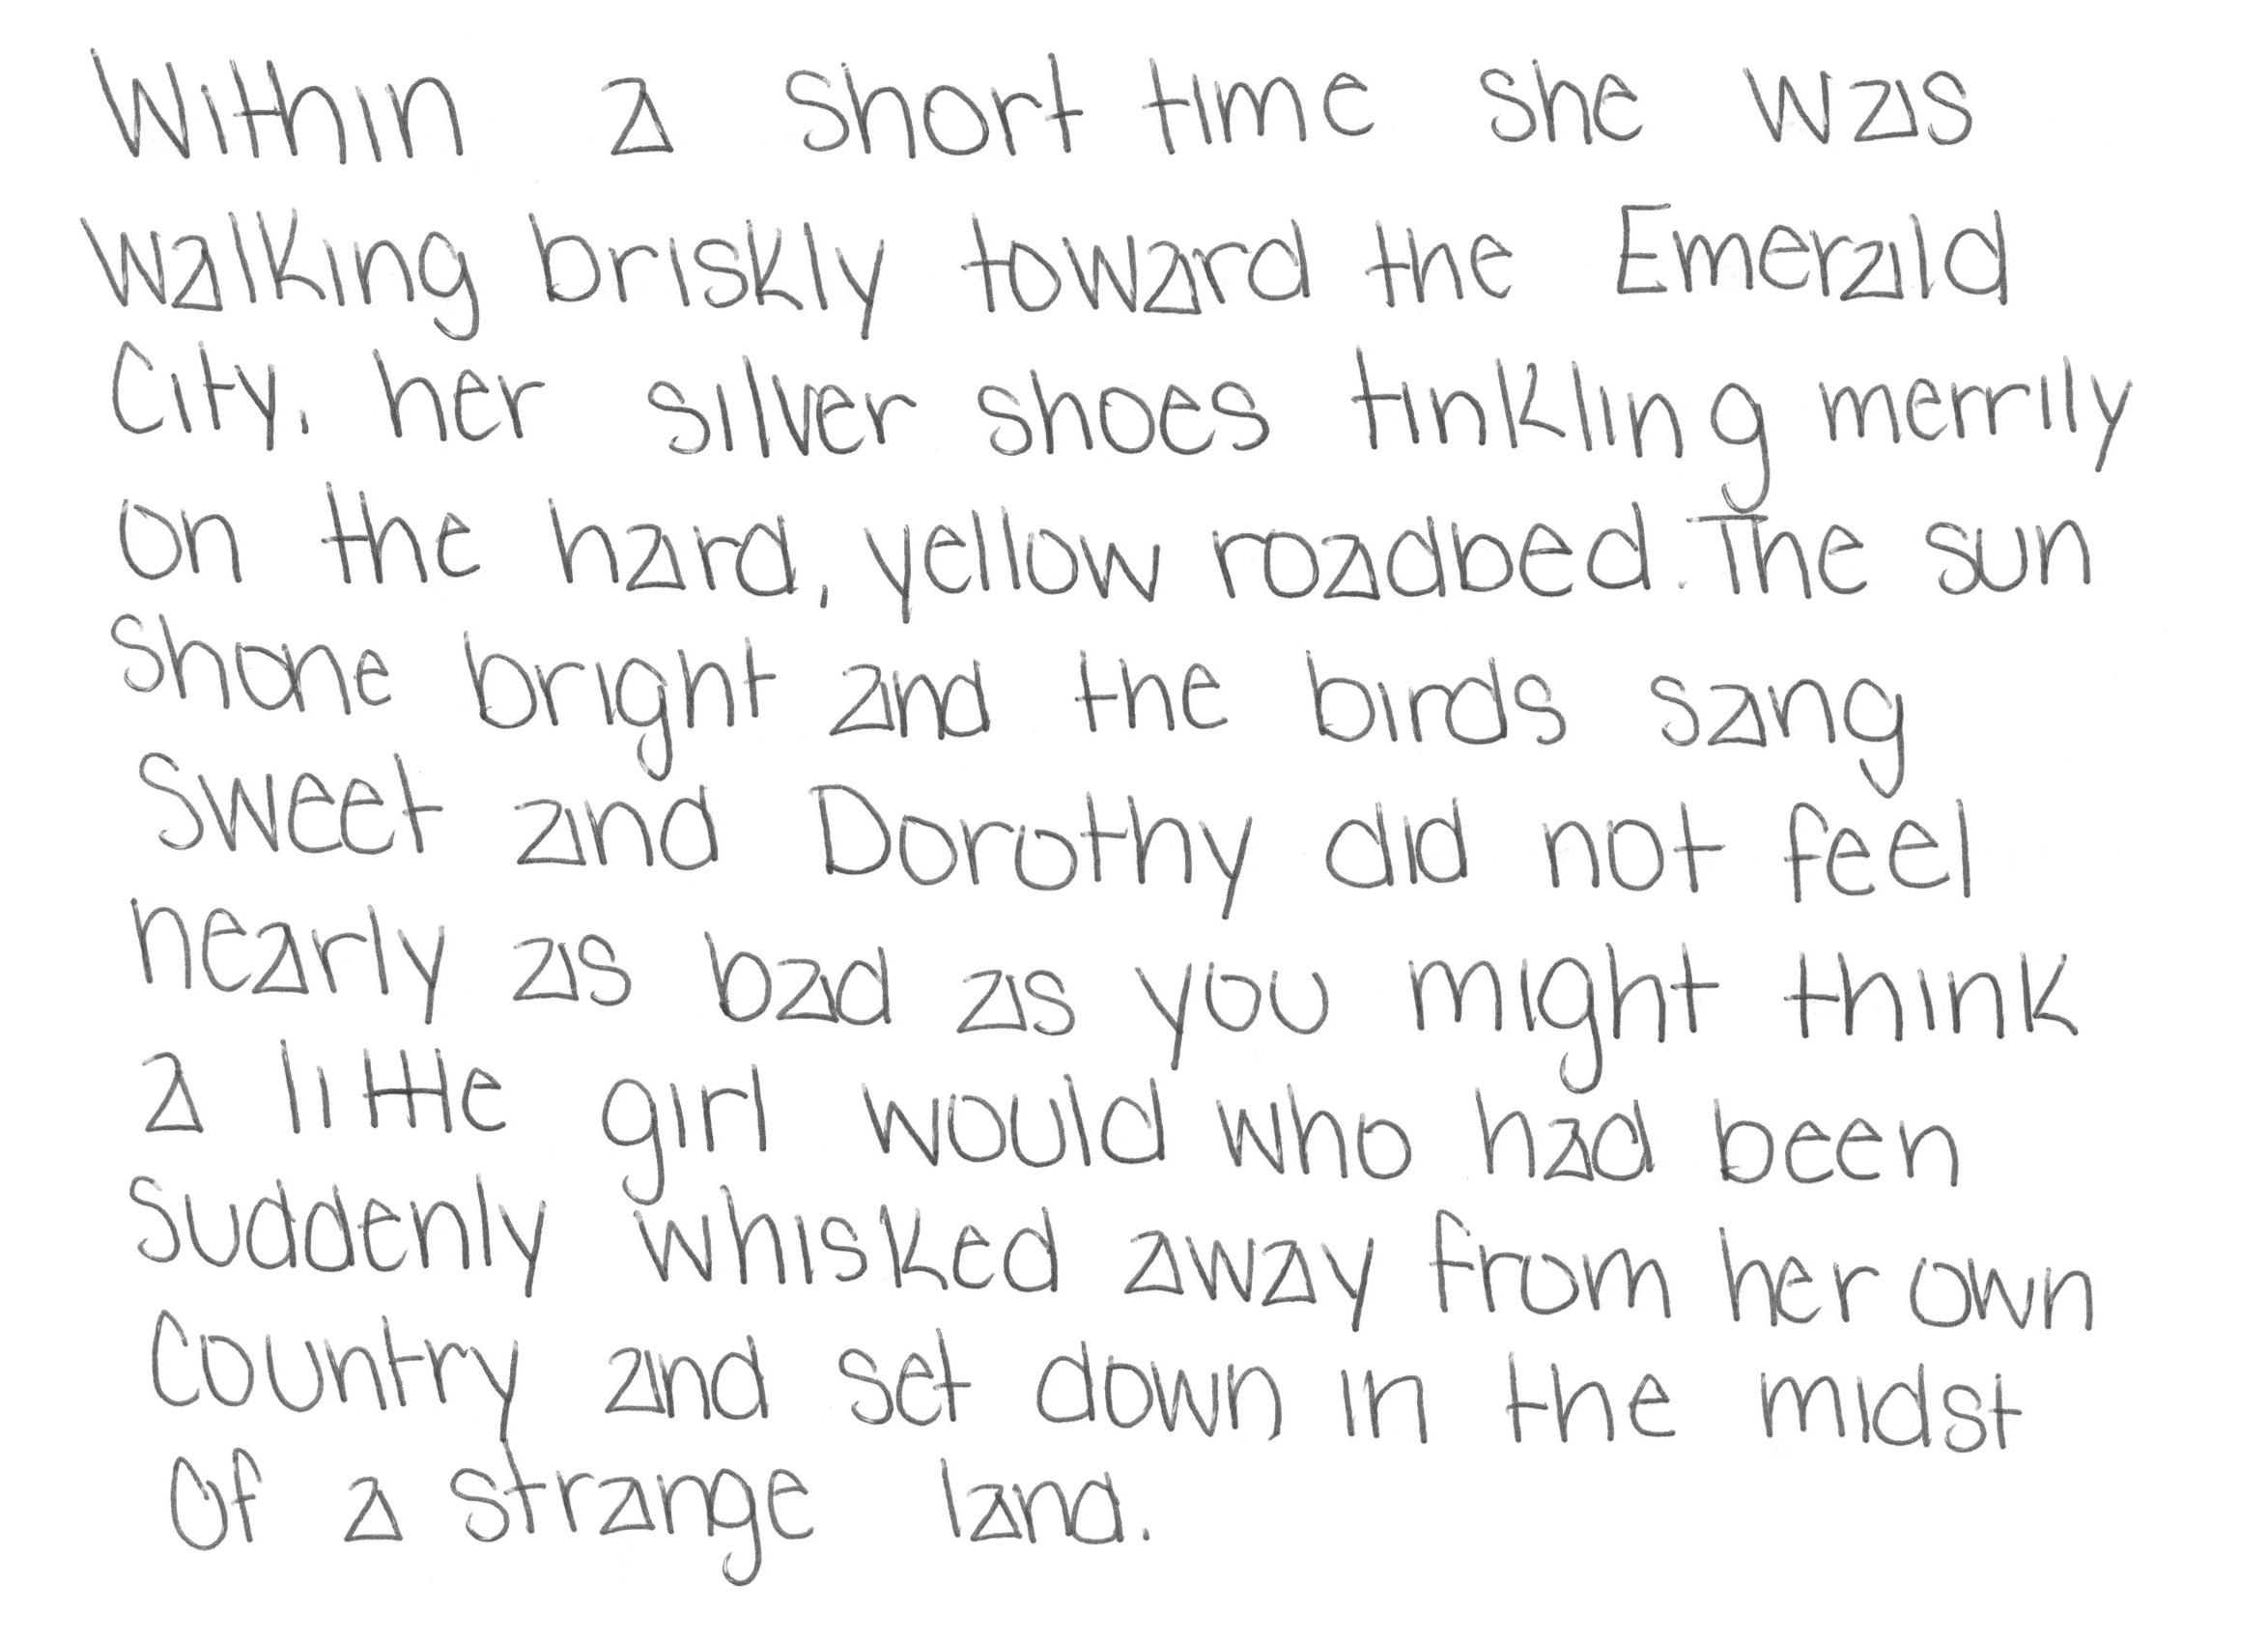 Within a short time she was
walking briskly toward the Emerald
City, her silver shoes tinkling merrily
on the hard, yellow roadbed. The sun
shone bright and the birds sang
sweet and Dorothy did not feel
nearly as bad as you might think
a little girl would who had been
suddenly whisked away from her own
country and set down in the midst
of a strange land.